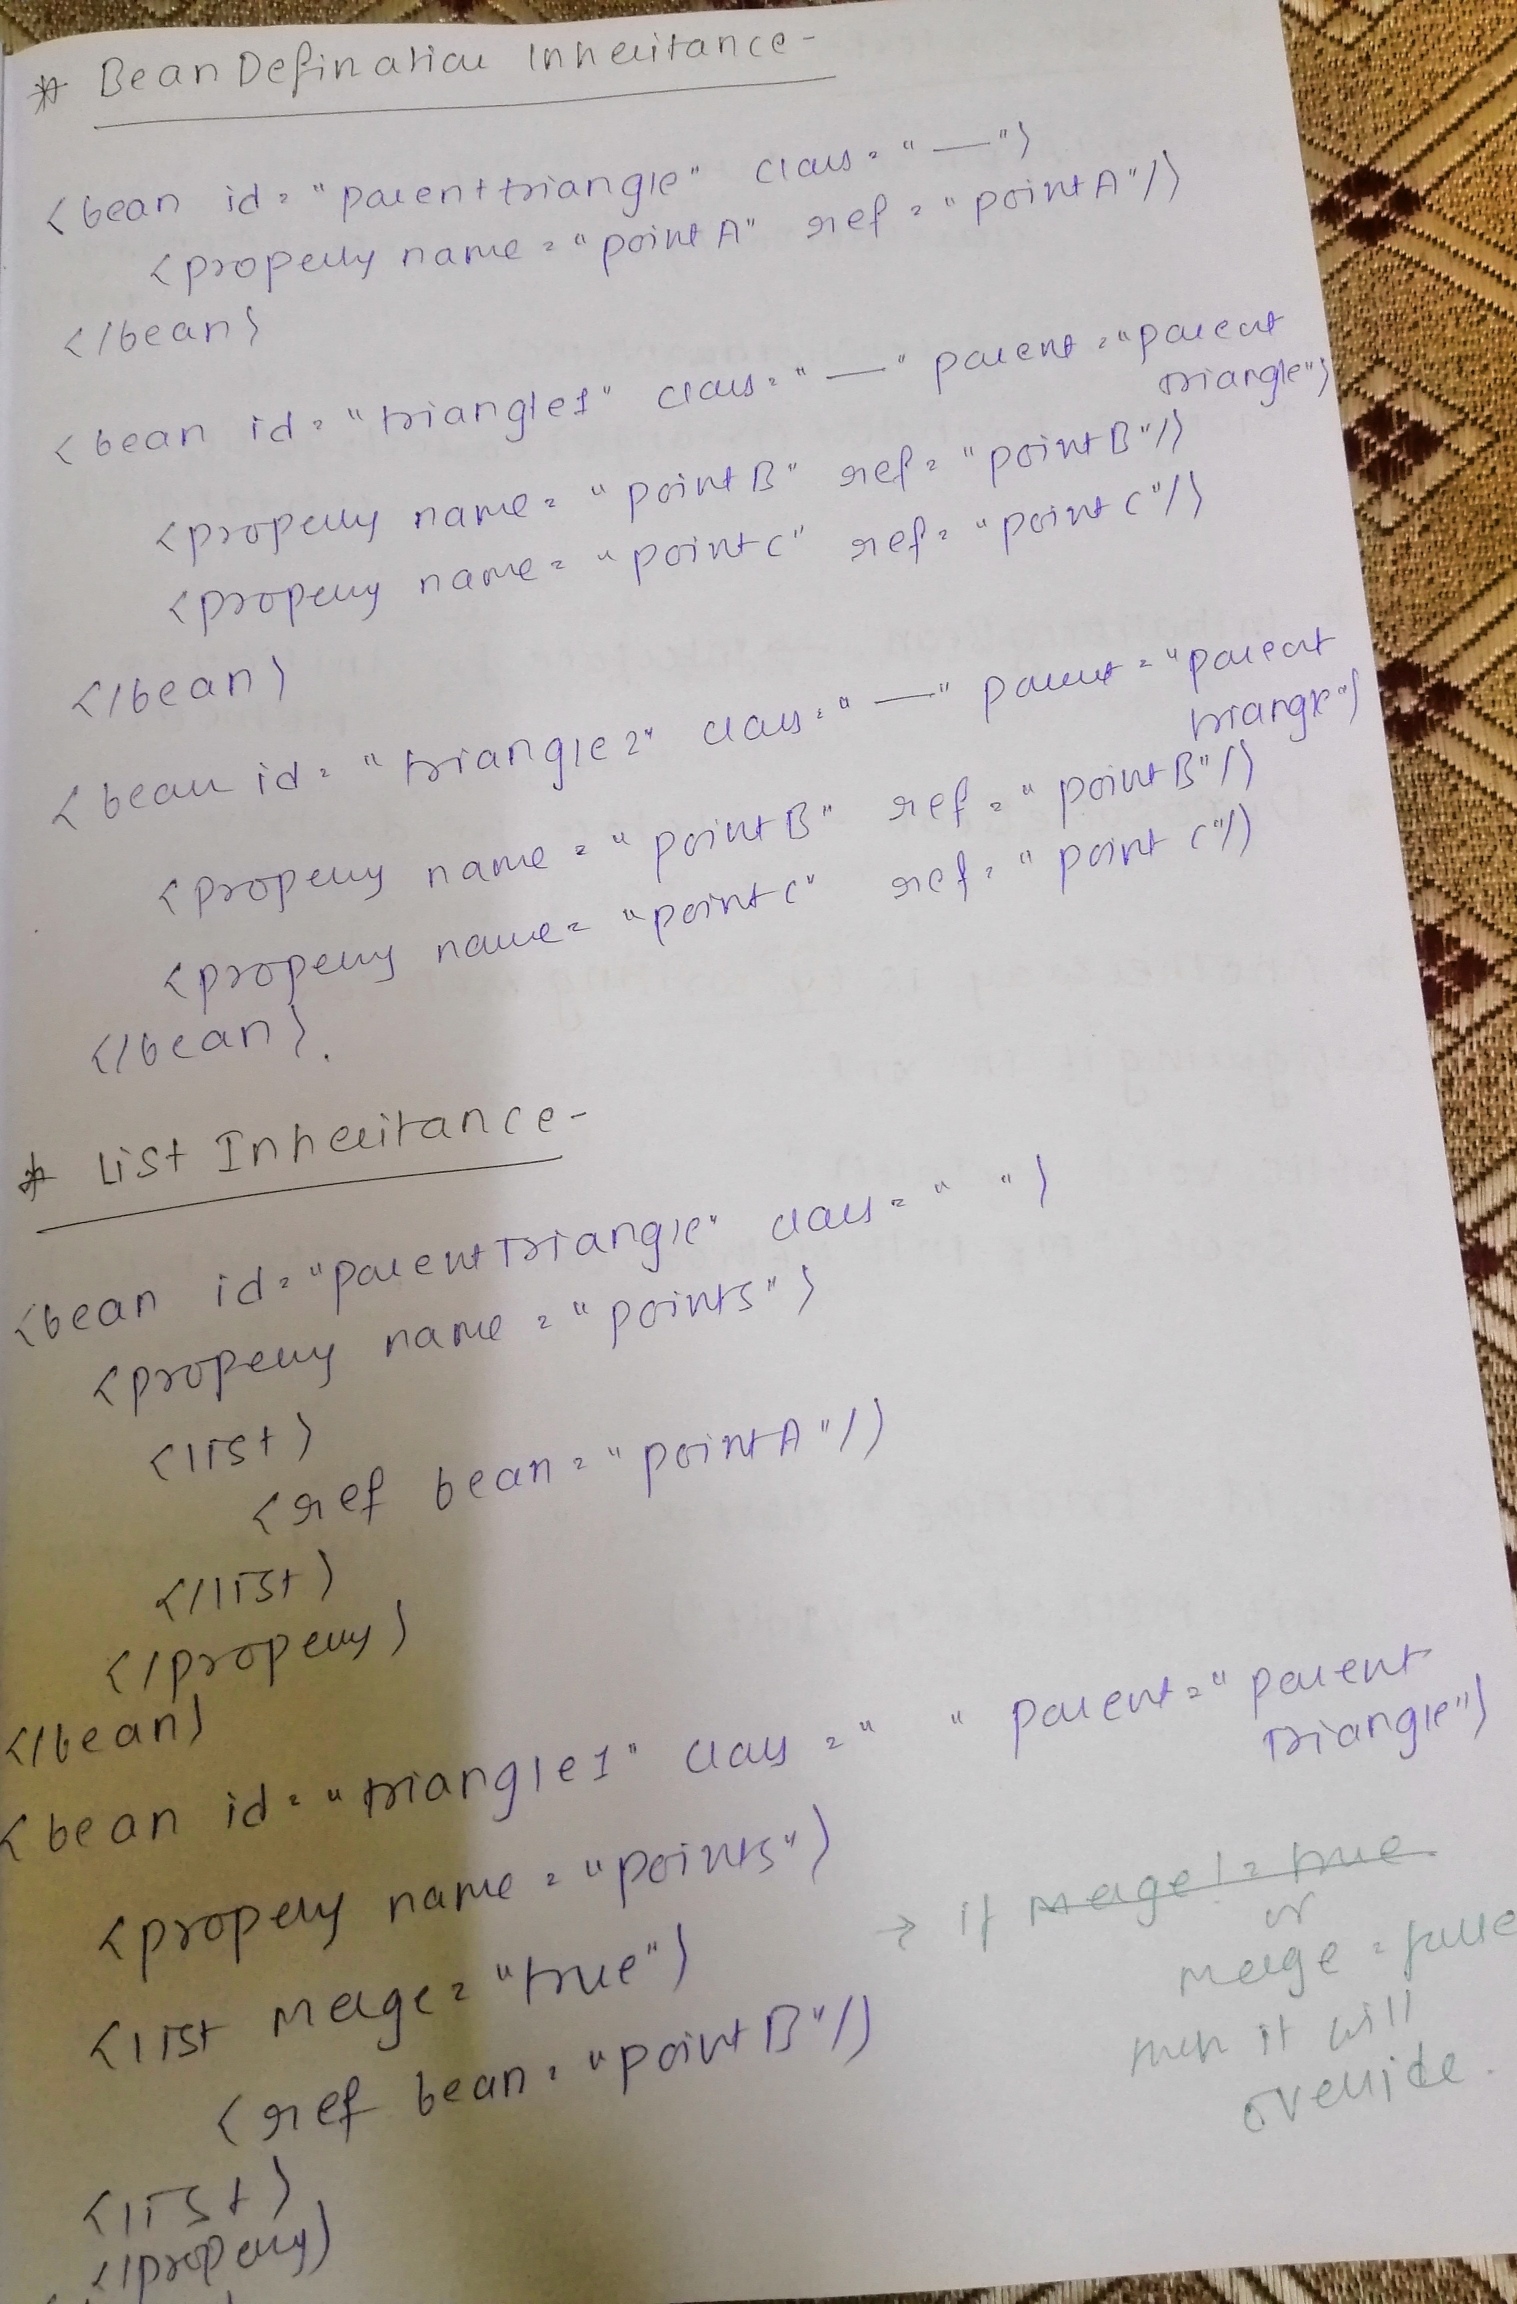 * Bean Defination Inheritance -
<bean id = "parenttriangle" class = "—">
<property name = "pointA" ref = "pointA"/>
</bean>
<bean id = "triangle1" class = "—" parent = "parent
triangle">
<property name = "pointB" ref = "pointB"/>
<property name = "pointC" ref = "pointC"/>
</bean>
<bean id = "triangle2" class = "—" parent = "parent
triangle">
<property name = "pointB" ref = "pointB"/>
<property name = "pointC" ref = "point C"/>
</bean>.
* List Inheritance -
<bean id = "parentTriangle" class = " ">
<property name = "points">
<list>
<ref bean = "pointA"/>
</list>
</property>
</bean>
<bean id = "triangle1" class = " " parent = "parent
Triangle">
<property name = "points">
<list merge = "true">
→ if merge != true
or
merge = false
then it will
override.
<ref bean = "pointB"/>
<list>
</property>